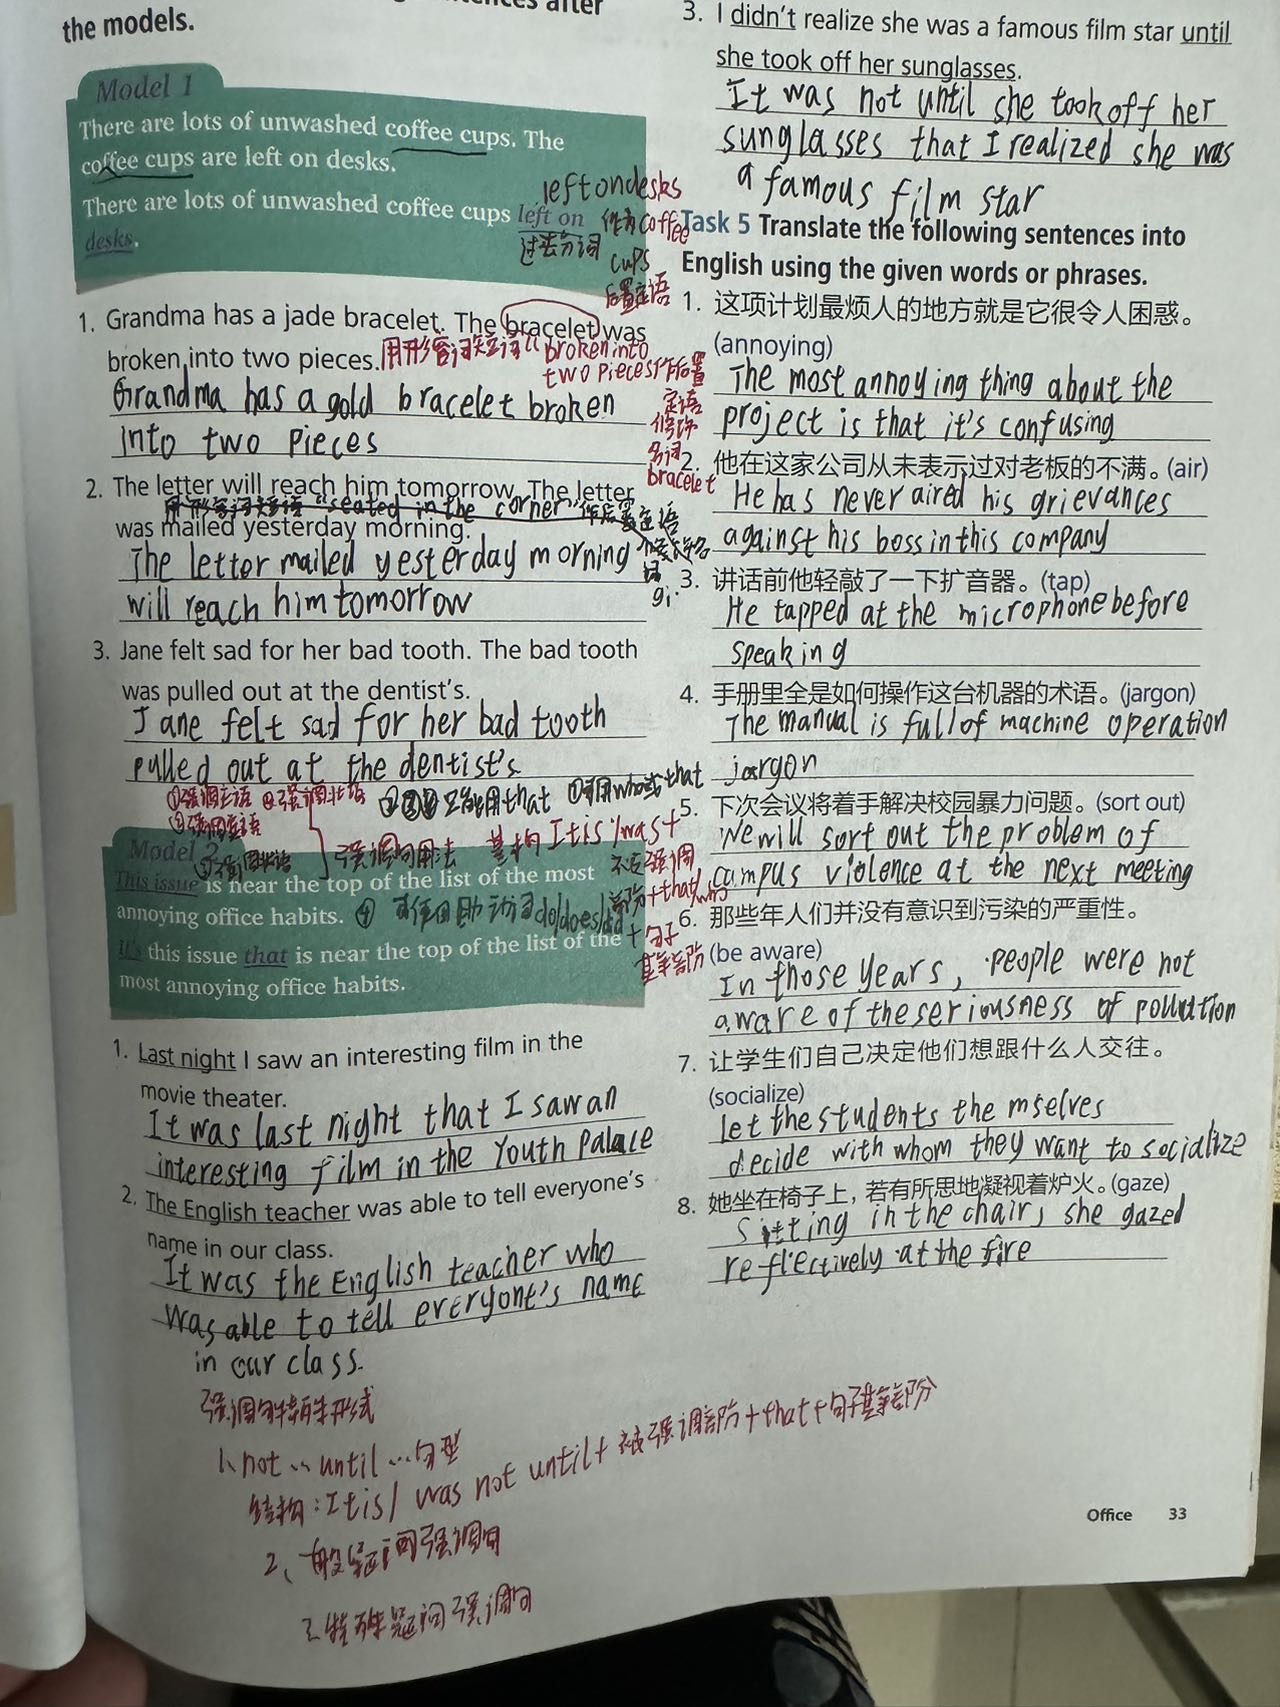 sentences after
the models.
Model 1
There are lots of unwashed coffee cups. The
coffee cups are left on desks.
There are lots of unwashed coffee cups left on
desks.
left on desks
作为coffee
cups
后置定语
过去分词
1. Grandma has a jade bracelet. The bracelet was
broken into two pieces.
用形容词短语“broken into
two pieces”作后置
定语
修饰
名词
bracelet
Grandma has a gold bracelet broken
into two pieces
2. The letter will reach him tomorrow. The letter
用形容词短语“seated in the corner”作后置定语
was mailed yesterday morning.
The letter mailed yesterday morning
will reach him tomorrow
3. Jane felt sad for her bad tooth. The bad tooth
was pulled out at the dentist's.
Jane felt sad for her bad tooth
pulled out at the dentist's
①强调主语
②强调宾语
③强调状语
②③只能用that ①可用who或that
强调句用法 基本构 It is/was+
被强调
部分+that/who
+句子
其余部分
Model 2
This issue is near the top of the list of the most
annoying office habits.
④ 可使用助动词do/does/did
It's this issue that is near the top of the list of the
most annoying office habits.
1. Last night I saw an interesting film in the
movie theater.
It was last night that I saw an
interesting film in the Youth Palace
2. The English teacher was able to tell everyone's
name in our class.
It was the English teacher who
was able to tell everyone's name
in our class.
强调句特殊形式
1、not … until …句型
结构:It is/ was not until+ 被强调部分+that+句子其余部分
2、一般疑问强调句
3、特殊疑问强调句
3. I didn't realize she was a famous film star until
she took off her sunglasses.
It was not until she took off her
sunglasses that I realized she was
a famous film star
Task 5 Translate the following sentences into
English using the given words or phrases.
1. 这项计划最烦人的地方就是它很令人困惑。
(annoying)
The most annoying thing about the
project is that it's confusing
2. 他在这家公司从未表示过对老板的不满。(air)
He has never aired his grievances
against his boss in this company
3. 讲话前他轻敲了一下扩音器。(tap)
He tapped at the microphone before
speaking
4. 手册里全是如何操作这台机器的术语。(jargon)
The manual is full of machine operation
jargon
5. 下次会议将着手解决校园暴力问题。(sort out)
We will sort out the problem of
campus violence at the next meeting
6. 那些年人们并没有意识到污染的严重性。
(be aware)
In those years, people were not
aware of the seriousness of pollution
7. 让学生们自己决定他们想跟什么人交往。
(socialize)
Let the students themselves
decide with whom they want to socialize
8. 她坐在椅子上,若有所思地凝视着炉火。(gaze)
Sitting in the chair, she gazed
reflectively at the fire
Office 33